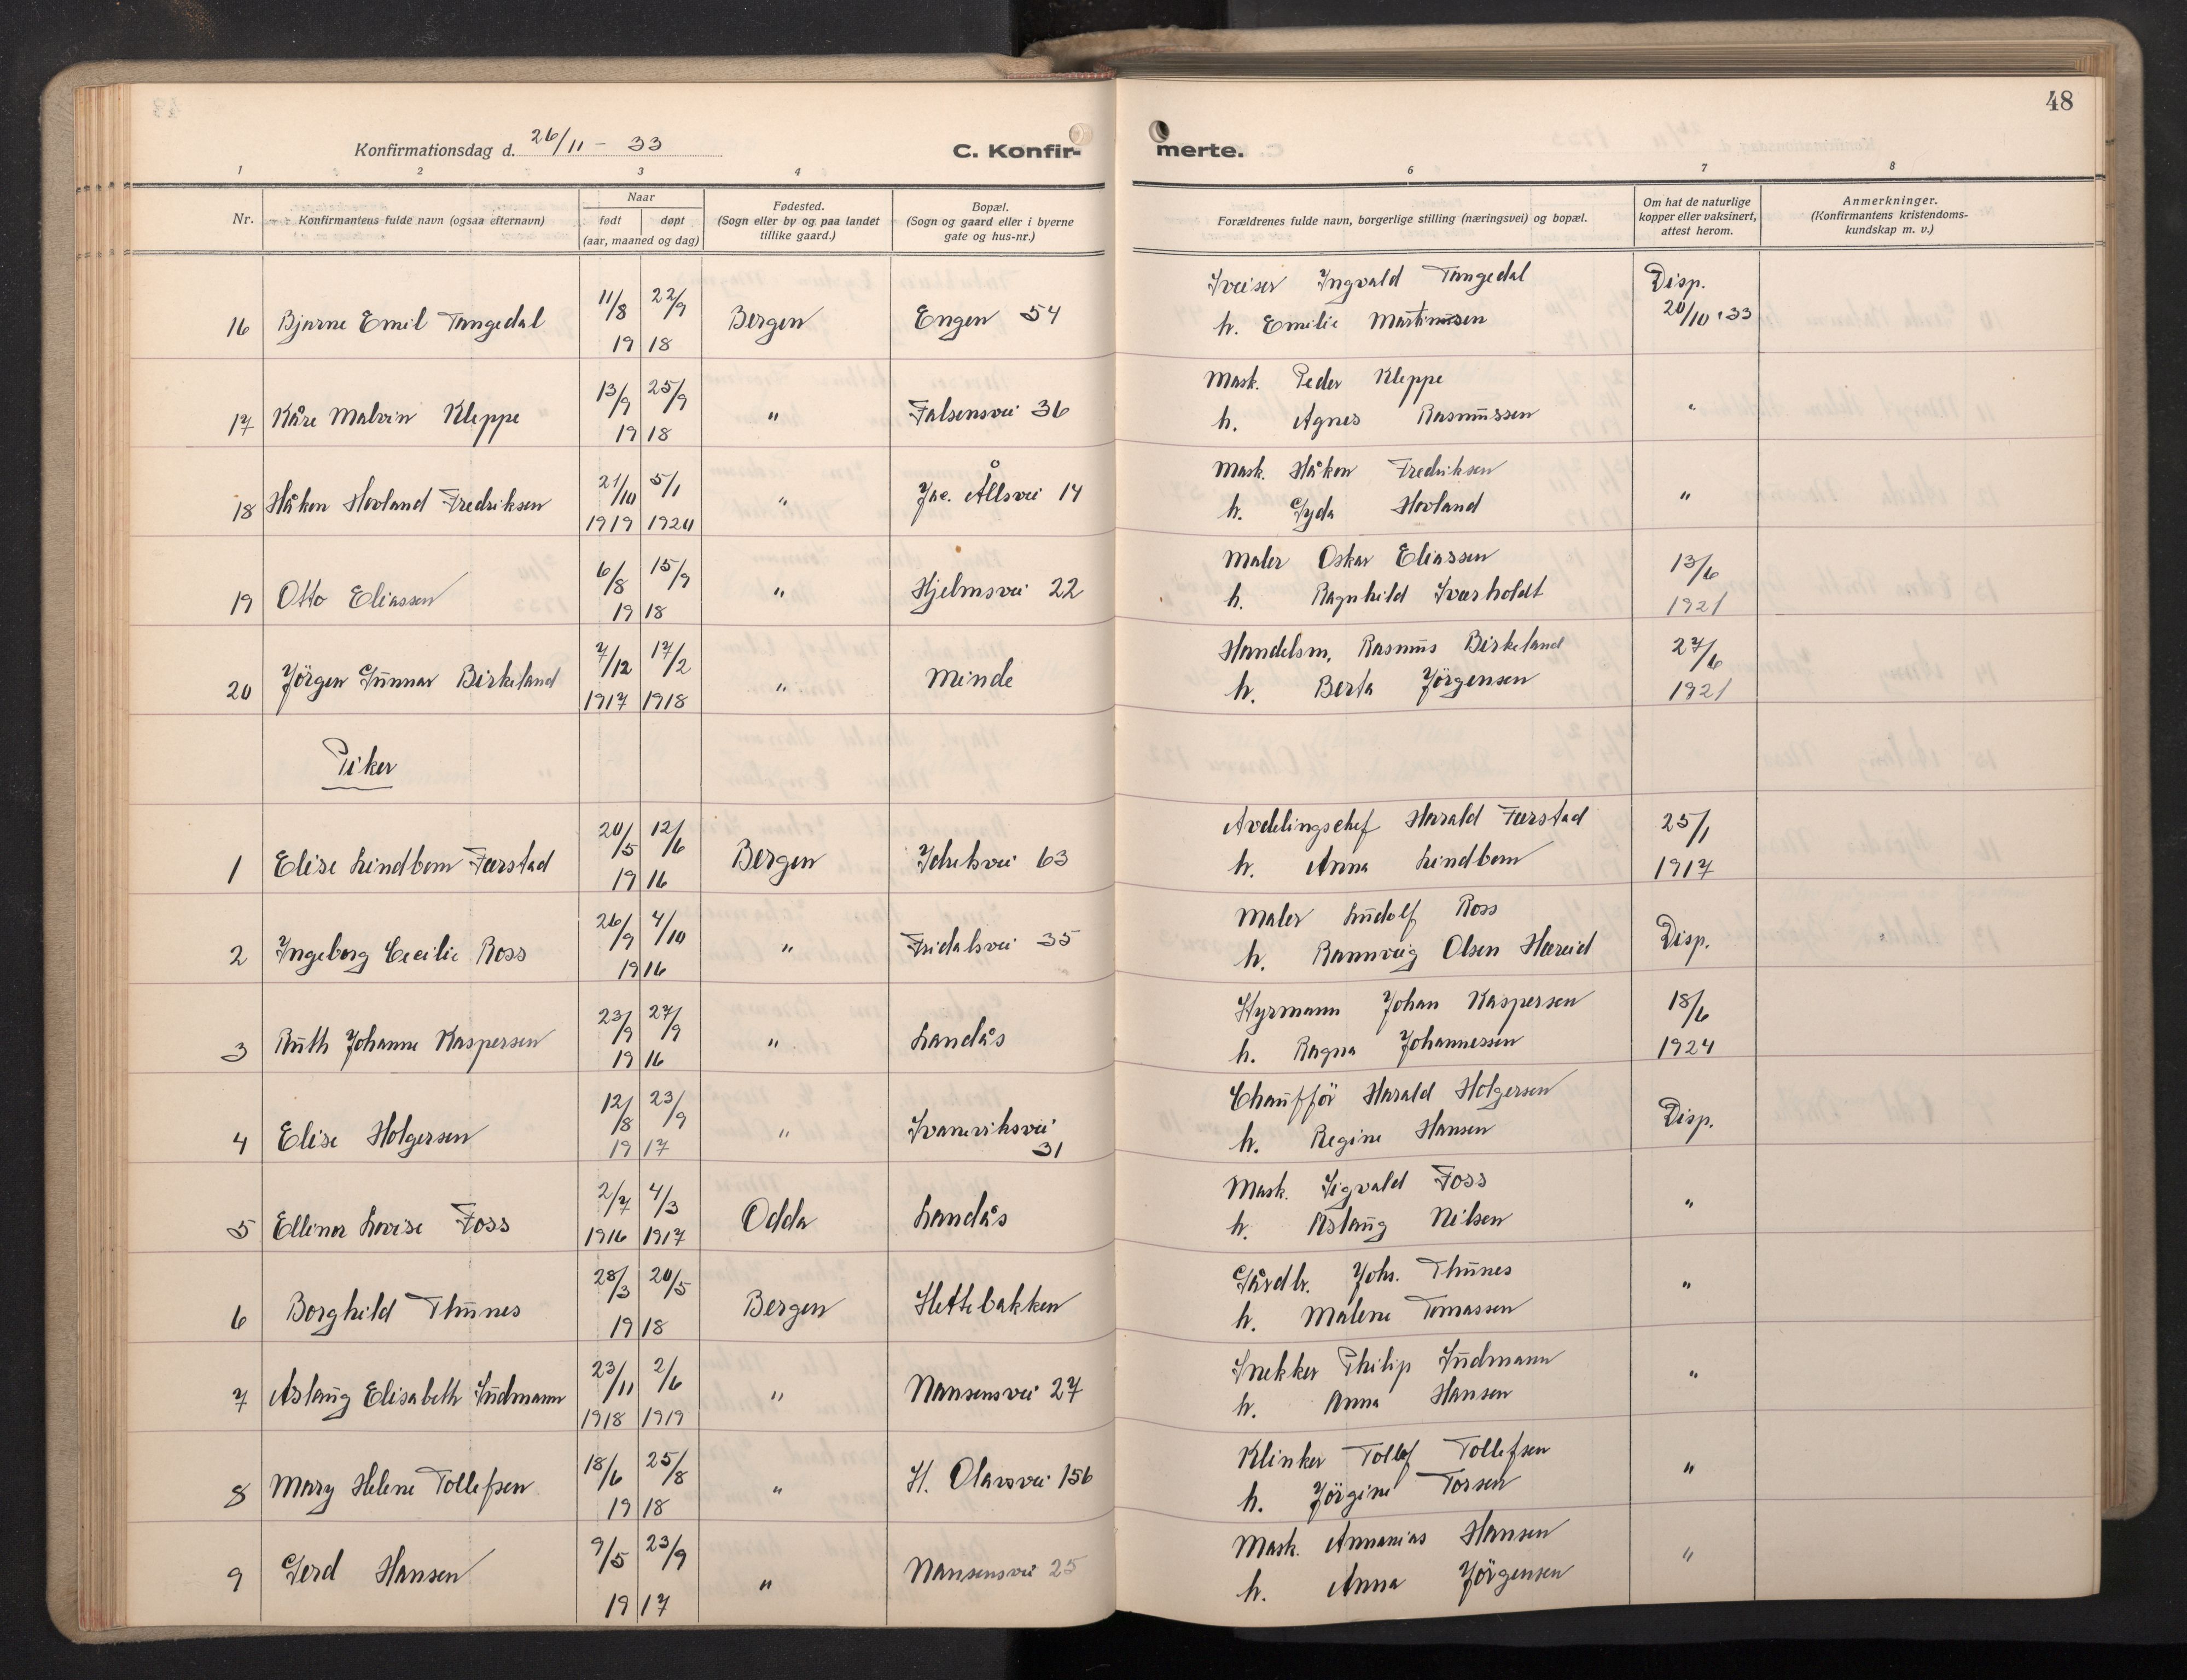 48
Konfirmationsdag d. 26/11 - 33
C. Konfir-
merte.
1 2 3 4 6 7 8
Nr.
Konfirmantens fulde navn (ogsaa efternavn)
Naar
født døpt
(aar, maaned og dag)
Fødested.
(Sogn eller by og paa landet
tillike gaard.)
Bopæl.
(Sogn og gaard eller i byerne
gate og hus-nr.)
Forældrenes fulde navn, borgerlige stilling (næringsvei) og bopæl.
Om hat de naturlige
kopper eller vaksinert,
attest herom.
Anmerkninger.
(Konfirmantens kristendoms-
kundskap m. v.)
16 Bjarne Emil Tangedal 11/8 22/9 1918 Bergen Engen 54
Sveiser Ingvald Tangedal Disp.
h. Emilie Martinusen 20/10 '33
17 Kåre Malvin Kleppe 13/9 25/9 1918 " Falsensvei 36
Mask. Peder Kleppe
h. Agnes Rasmussen "
18 Håkon Hovland Fredriksen 21/10 1919 5/1 1920 " Jac. Ållsvei 14
Mask. Håkon Fredriksen
h. Gyda Hovland "
19 Otto Eliassen 6/8 15/9 1918 " Hjelmsvei 22
Maler Oskar Eliassen 13/6
h. Ragnhild Sværholdt 1921
20 Jörgen Gunnar Birkeland 7/12 1917 17/2 1918 " Minde
Handelsm. Rasmus Birkeland 27/6
h. Berta Jörgensen 1921
Piker
1 Elise Lindbom Færstad 20/5 12/6 1916 Bergen 63
Avdelingschef Harald Færstad 25/1
h. Anna Lindbom 1917
2 Ingeborg Cecilie Ross 26/9 4/10 1916 " Fridalsvei 35
Maler Ludolf Ross
h. Rannveig Olsen Hæreid Disp.
3 Ruth Johanne Kaspersen 23/9 27/9 1916 " Landås
Styrmann Johan Kaspersen 18/6
h. Ragna Johannessen 1924
4 Elise Holgersen 12/8 23/9 1917 " Svaneviksvei 31
Chaufför Harald Holgersen
h. Regine Hansen Disp.
5 Ellinor Lovise Foss 2/7 1916 4/3 1917 Odda Landås
Mask. Sigvald Foss
h. Aslaug Nilsen "
6 Borghild Thunes 28/3 20/5 1918 Bergen Slettebakken
Gårdbr. Johs. Thunes
h. Malene Tomassen "
7 Aslaug Elisabeth Sudmann 23/11 1918 2/6 1919 " Nansensvei 27
Snekker Philip Sudmann
h. Anna Hansen "
8 Mary Helene Tollefsen 18/6 25/8 1918 " St. Olavsvei 156
Klinker Tollef Tollefsen
h. Jörgine Torsen "
9 Gerd Hansen 9/5 23/9 1917 " Nansensvei 25
Mask. Annanias Hansen
h. Anna Jörgensen "